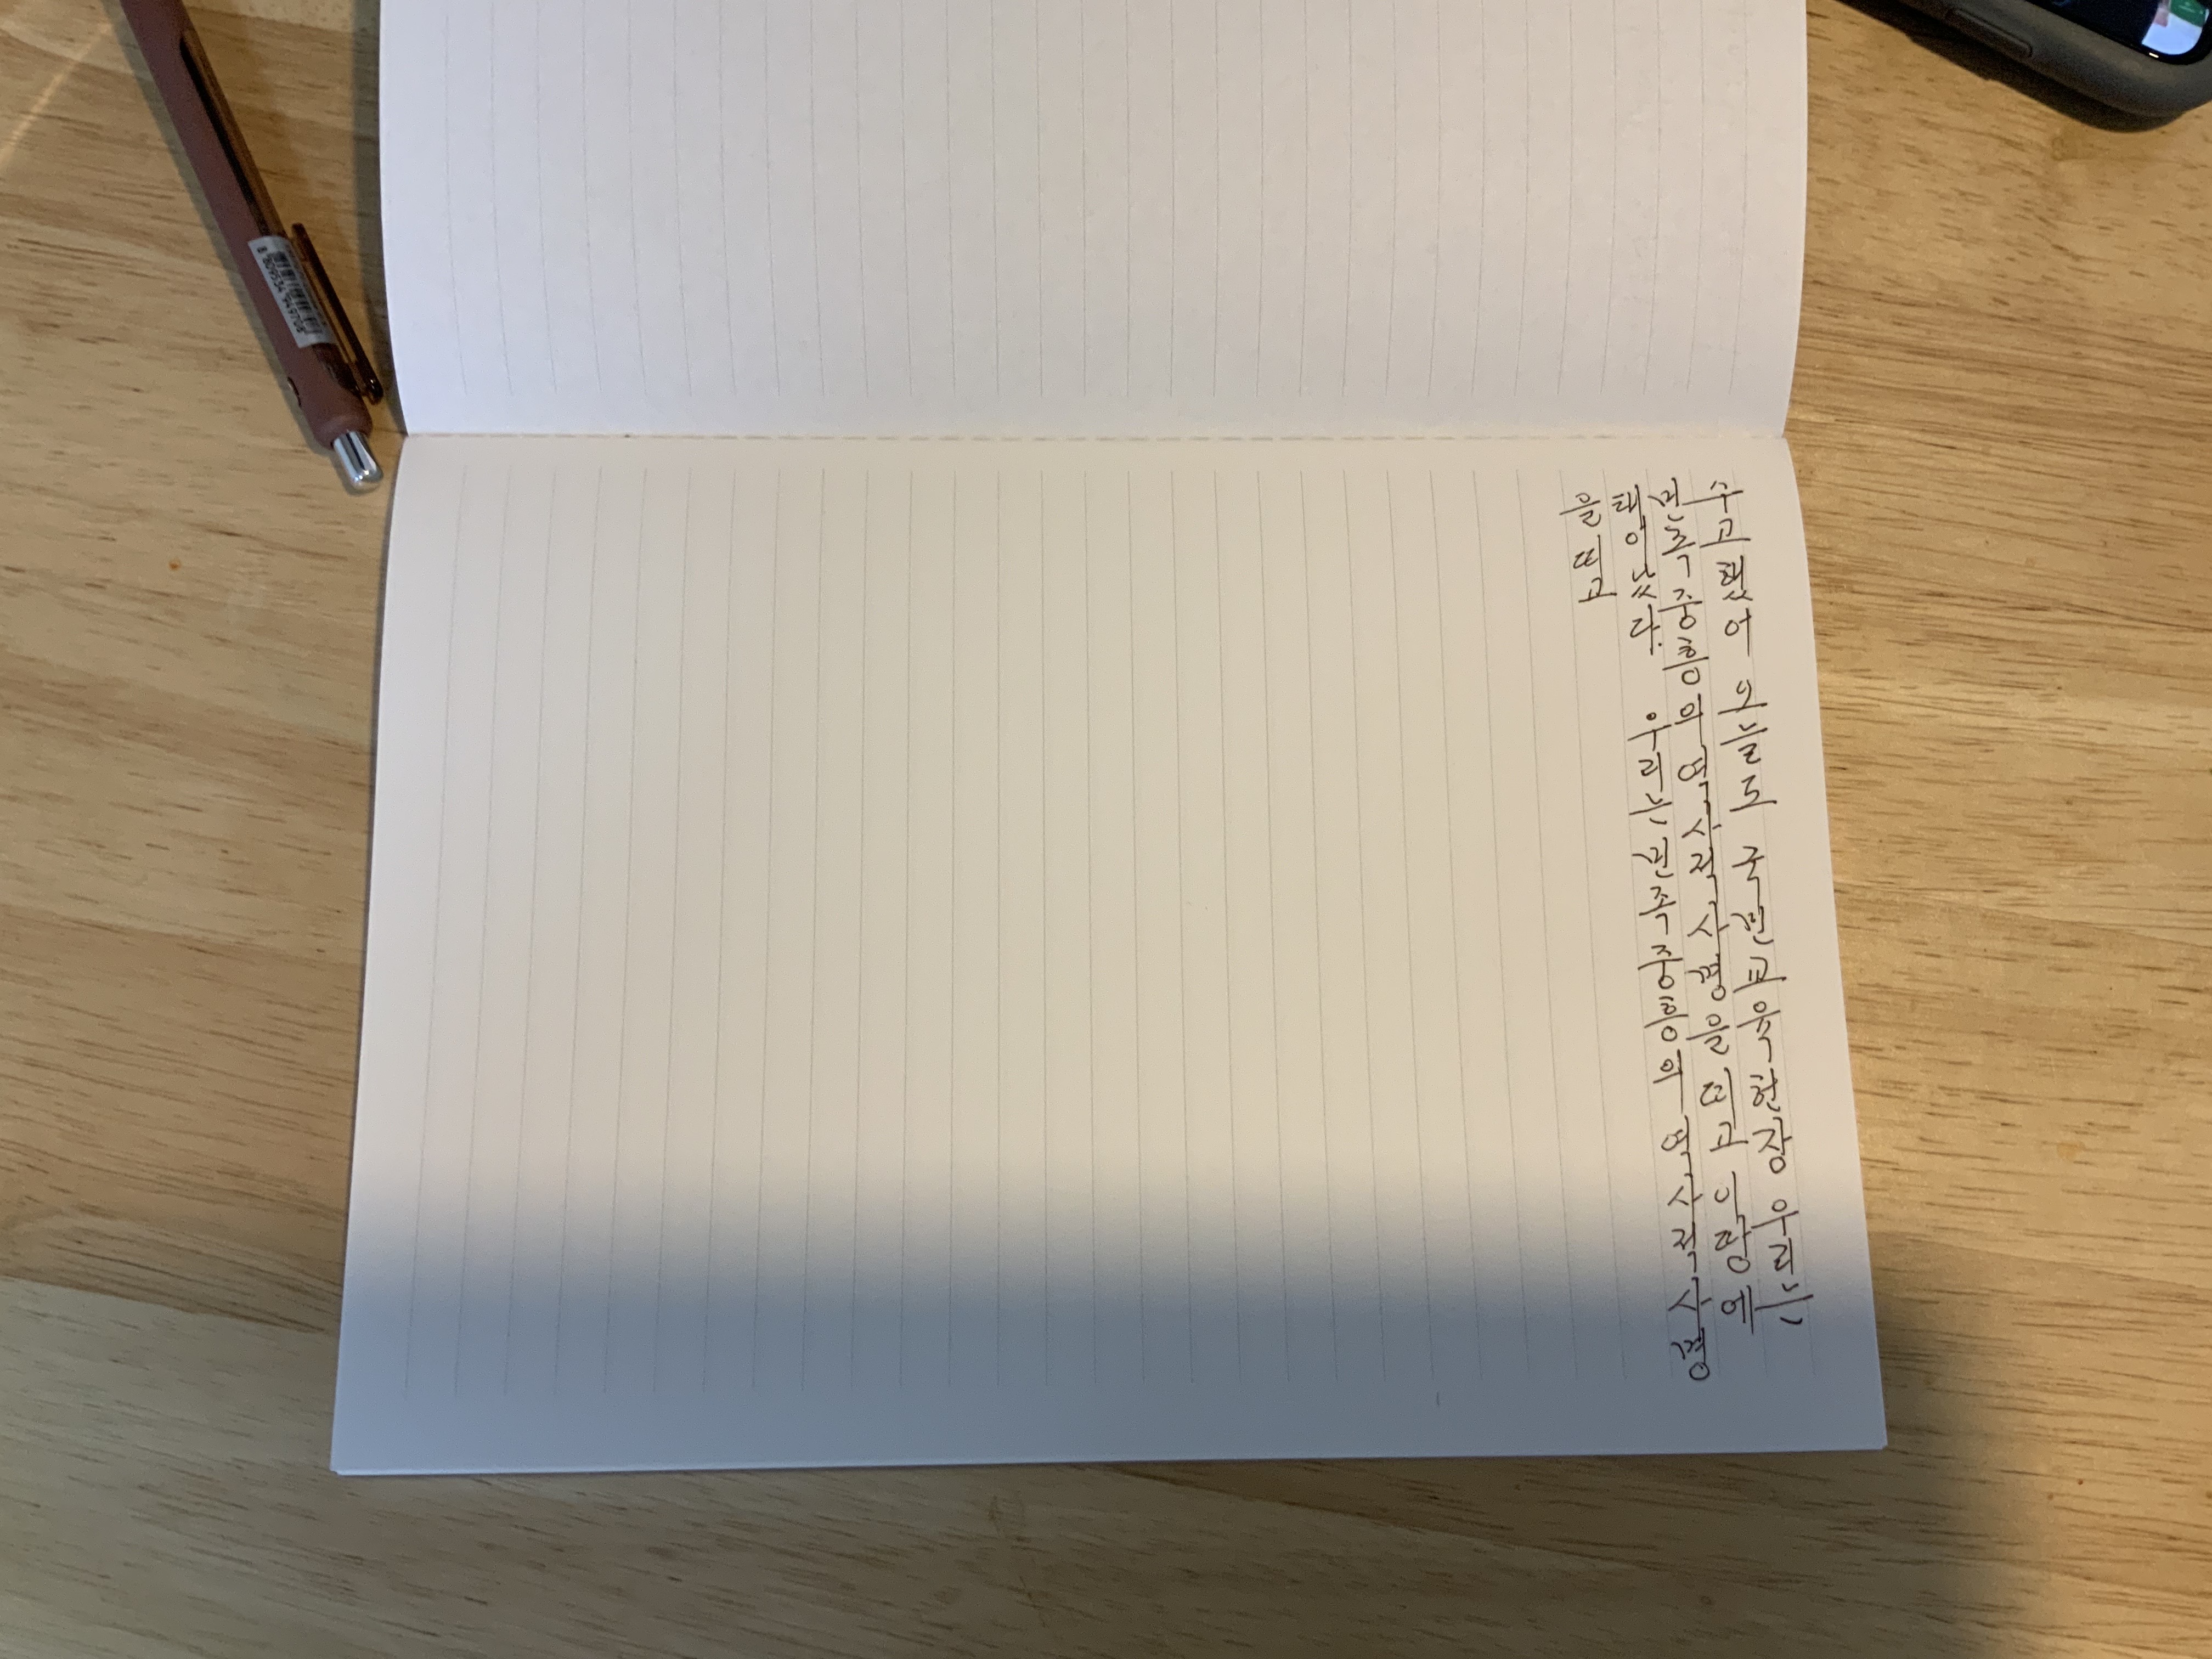 수고했어 오늘도 국민교육헌장 우리는
민족중흥의 역사적 사명을 띠고 이 땅에
태어났다. 우리는 민족중흥의 역사적 사명
을 띠고